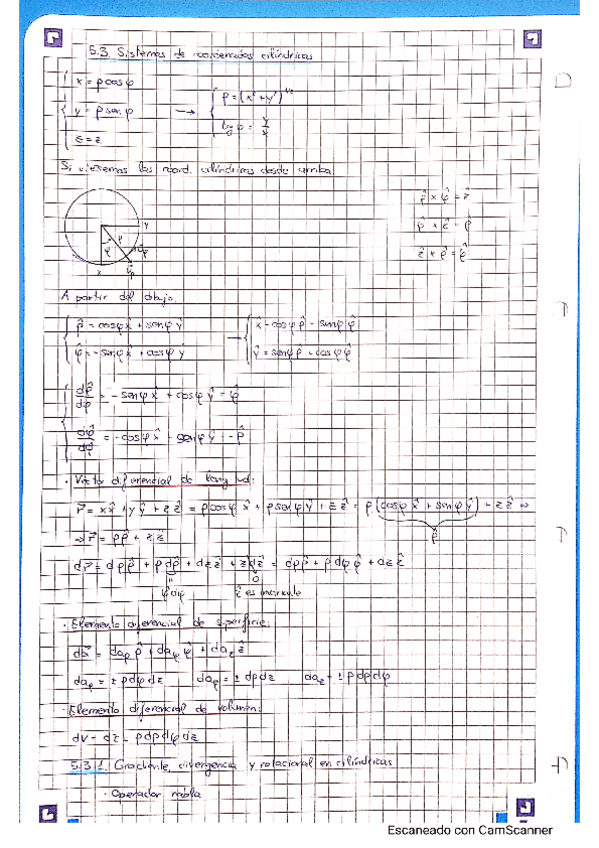 5.3 Sistemas de coordenadas cilíndricas
x = ρcosφ
y = ρsenφ → ρ = (x² + y²)^1/2
z = z tgφ = y/x
Si viésemos las coord. cilíndricas desde arriba
ρ̂ x φ̂ = ẑ
φ̂ x ẑ = ρ̂
ẑ x ρ̂ = φ̂
y
x
A partir del dibujo,
ρ̂ = cosφ x̂ + senφ ŷ → x̂ = cosφ ρ̂ - senφ φ̂
φ̂ = -senφ x̂ + cosφ ŷ ŷ = senφ ρ̂ + cosφ φ̂
dρ̂/dφ = -senφ x̂ + cosφ ŷ = φ̂
dφ̂/dφ = -cosφ x̂ - senφ ŷ = -ρ̂
· Vector diferencial de longitud:
r⃗ = x x̂ + y ŷ + z ẑ = ρcosφ x̂ + ρsenφ ŷ + z ẑ = ρ(cosφ x̂ + senφ ŷ) + z ẑ ⇒
ρ̂
⇒ r⃗ = ρρ̂ + z ẑ
dr⃗ = dρ ρ̂ + ρ dρ̂ + dz ẑ + z dẑ = dρ ρ̂ + ρ dφ φ̂ + dz ẑ
φ̂ dφ 0
ẑ es
· Elemento diferencial de superficie:
da⃗ = daρ ρ̂ + daφ φ̂ + daz ẑ
daρ = ± ρ dφ dz daφ = ± dρ dz daz = ± ρ dρ dφ
· Elemento diferencial de volumen:
dV = dτ = ρ dρ dφ dz
5.3.1. Gradiente, divergencia y rotacional en cilíndricas
· Operador nabla
Escaneado con CamScanner